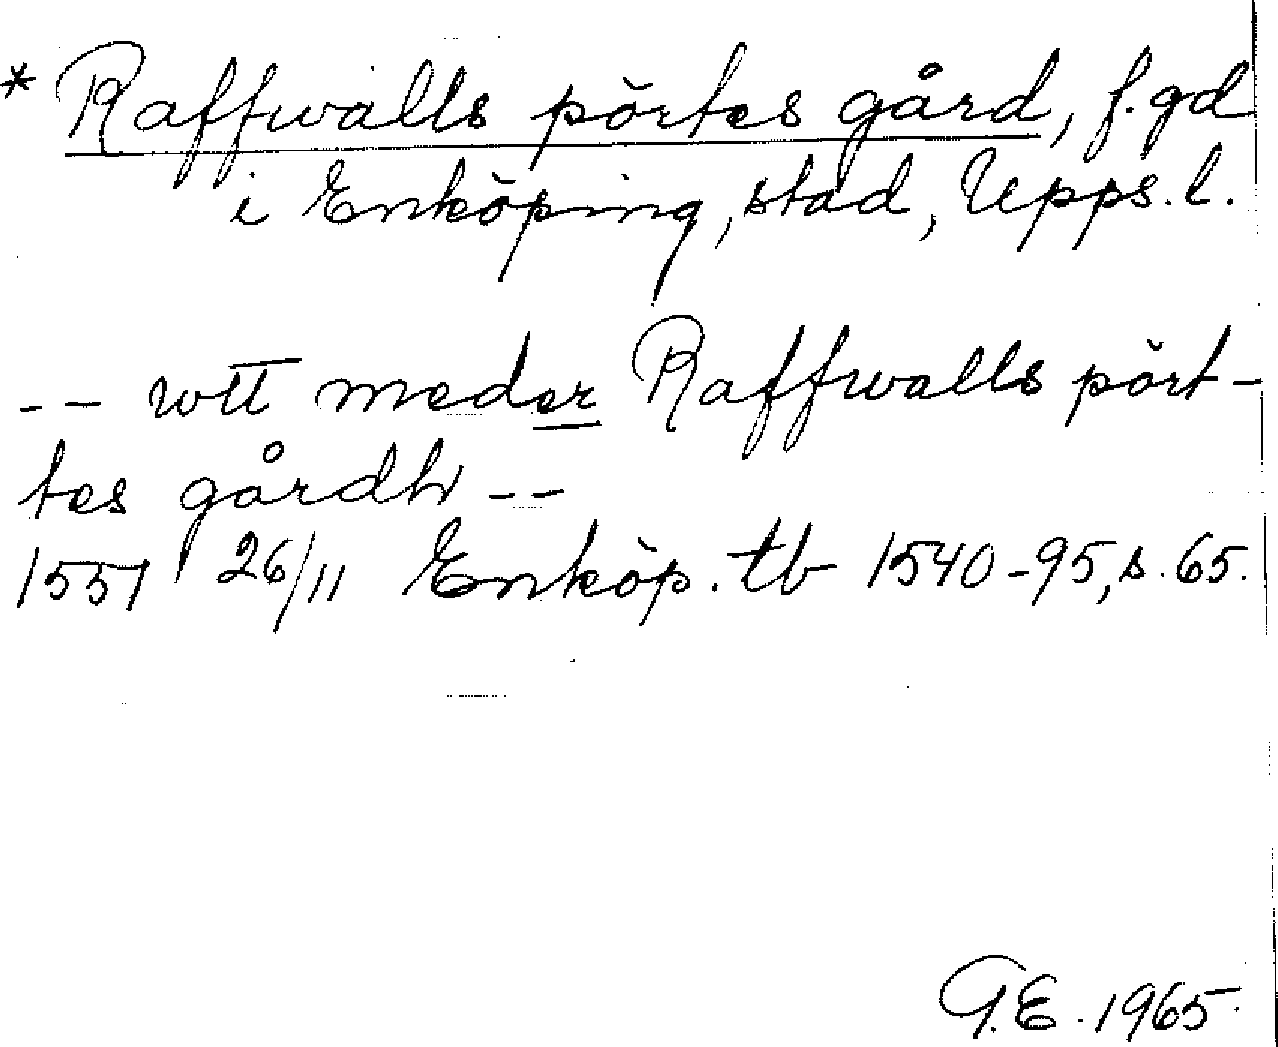 * Raffwalls pörtes gård, f. gd
i Enköping, stad, Upps. l.
-- wtt meder Raffwalls pört-
tes gårdh --
1551 26/11 Enköp. tb 1540-95, s. 65.
G.E. 1965.